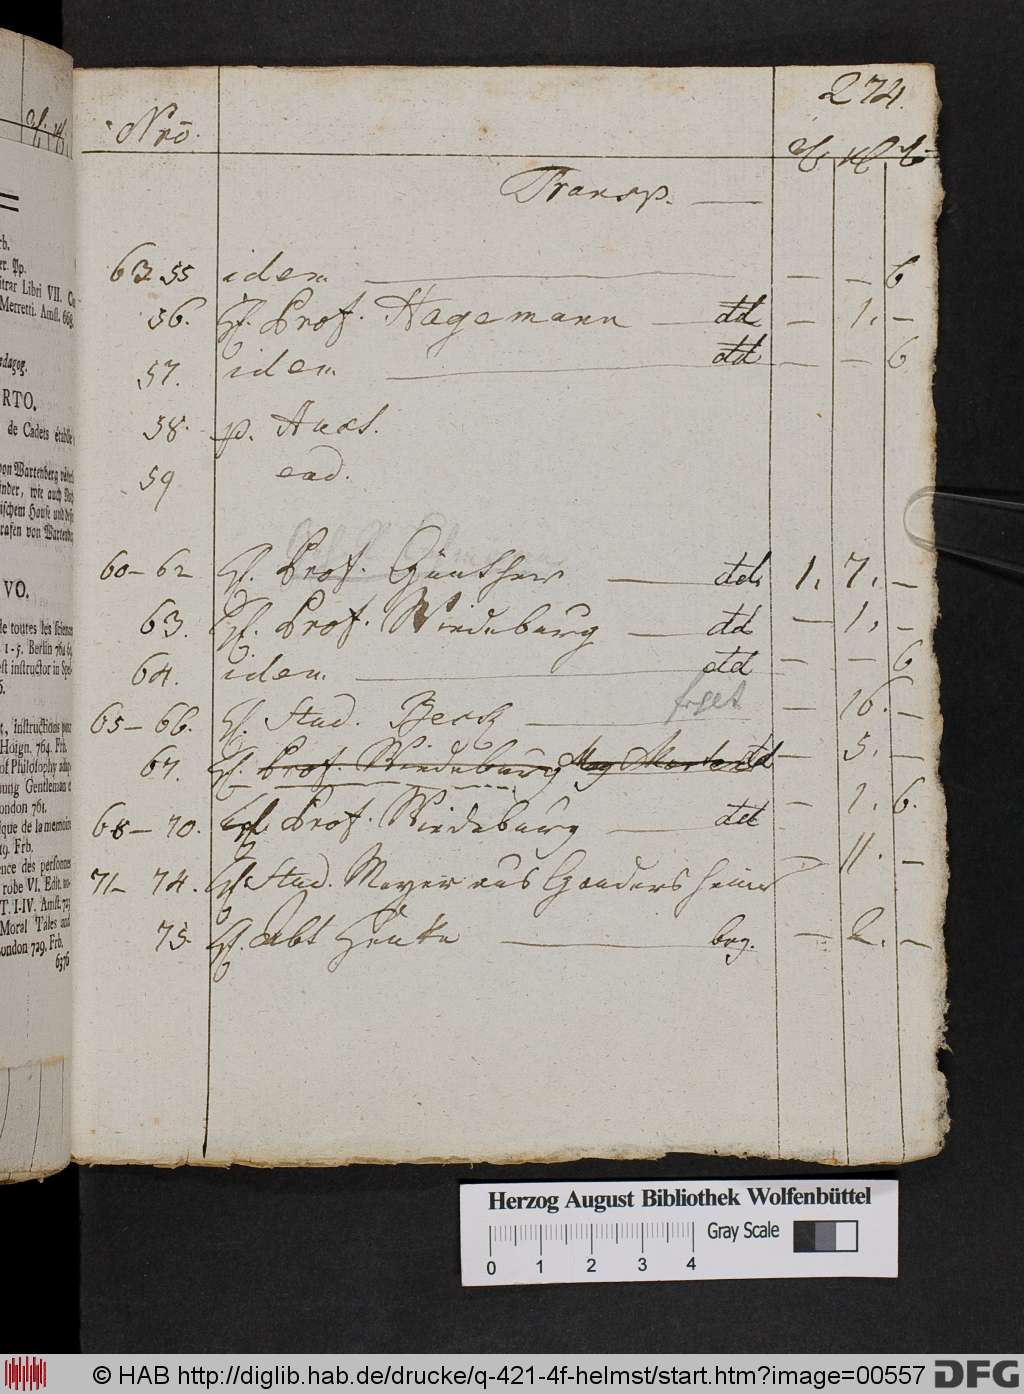 274.
Nrō.
Transp.
63.55 idem — — 6
56. H. Prof. Hagemann dd — 1. —
57. idem dd — — 6
58. p. Auct.
59 ead.
60–62 H. Prof. Günther dd. 1. 7. —
63. H. Prof. Wiedeburg dd — 1. —
64. idem dd — — 6
65–66. H. Stud. Beck — 16. —
67. H. Prof. Wiedeburg Mag dd — 5. —
68–70. H. Prof. Wiedeburg dd — 1. 6.
71–74. H. Stud. Meyer aus Gandersheim — 11. —
75. H. Abt Henke — 2. —
rb.
er. Pp.
itrar Libri VII.
Merretti. Amst. 668.
edagog.
RTO.
de Cadets etablie
von Wartenberg
inder, wie auch
ischem Hause und
rafen von
VO.
de toutes les sciences
1-5. Berlin 764
est instructor in
6.
t, instructions pour
Hoign. 764. Frb.
of Philosophy
oung Gentleman
London 761.
ique de la memoire
19. Frb.
ence des personnes
robe VI. Edit.
T. I-IV. Amst. 723
Moral Tales and
London 729. Frb.
6376
Herzog August Bibliothek Wolfenbüttel
Gray Scale
0 1 2 3 4
© HAB http://diglib.hab.de/drucke/q-421-4f-helmst/start.htm?image=00557
DFG